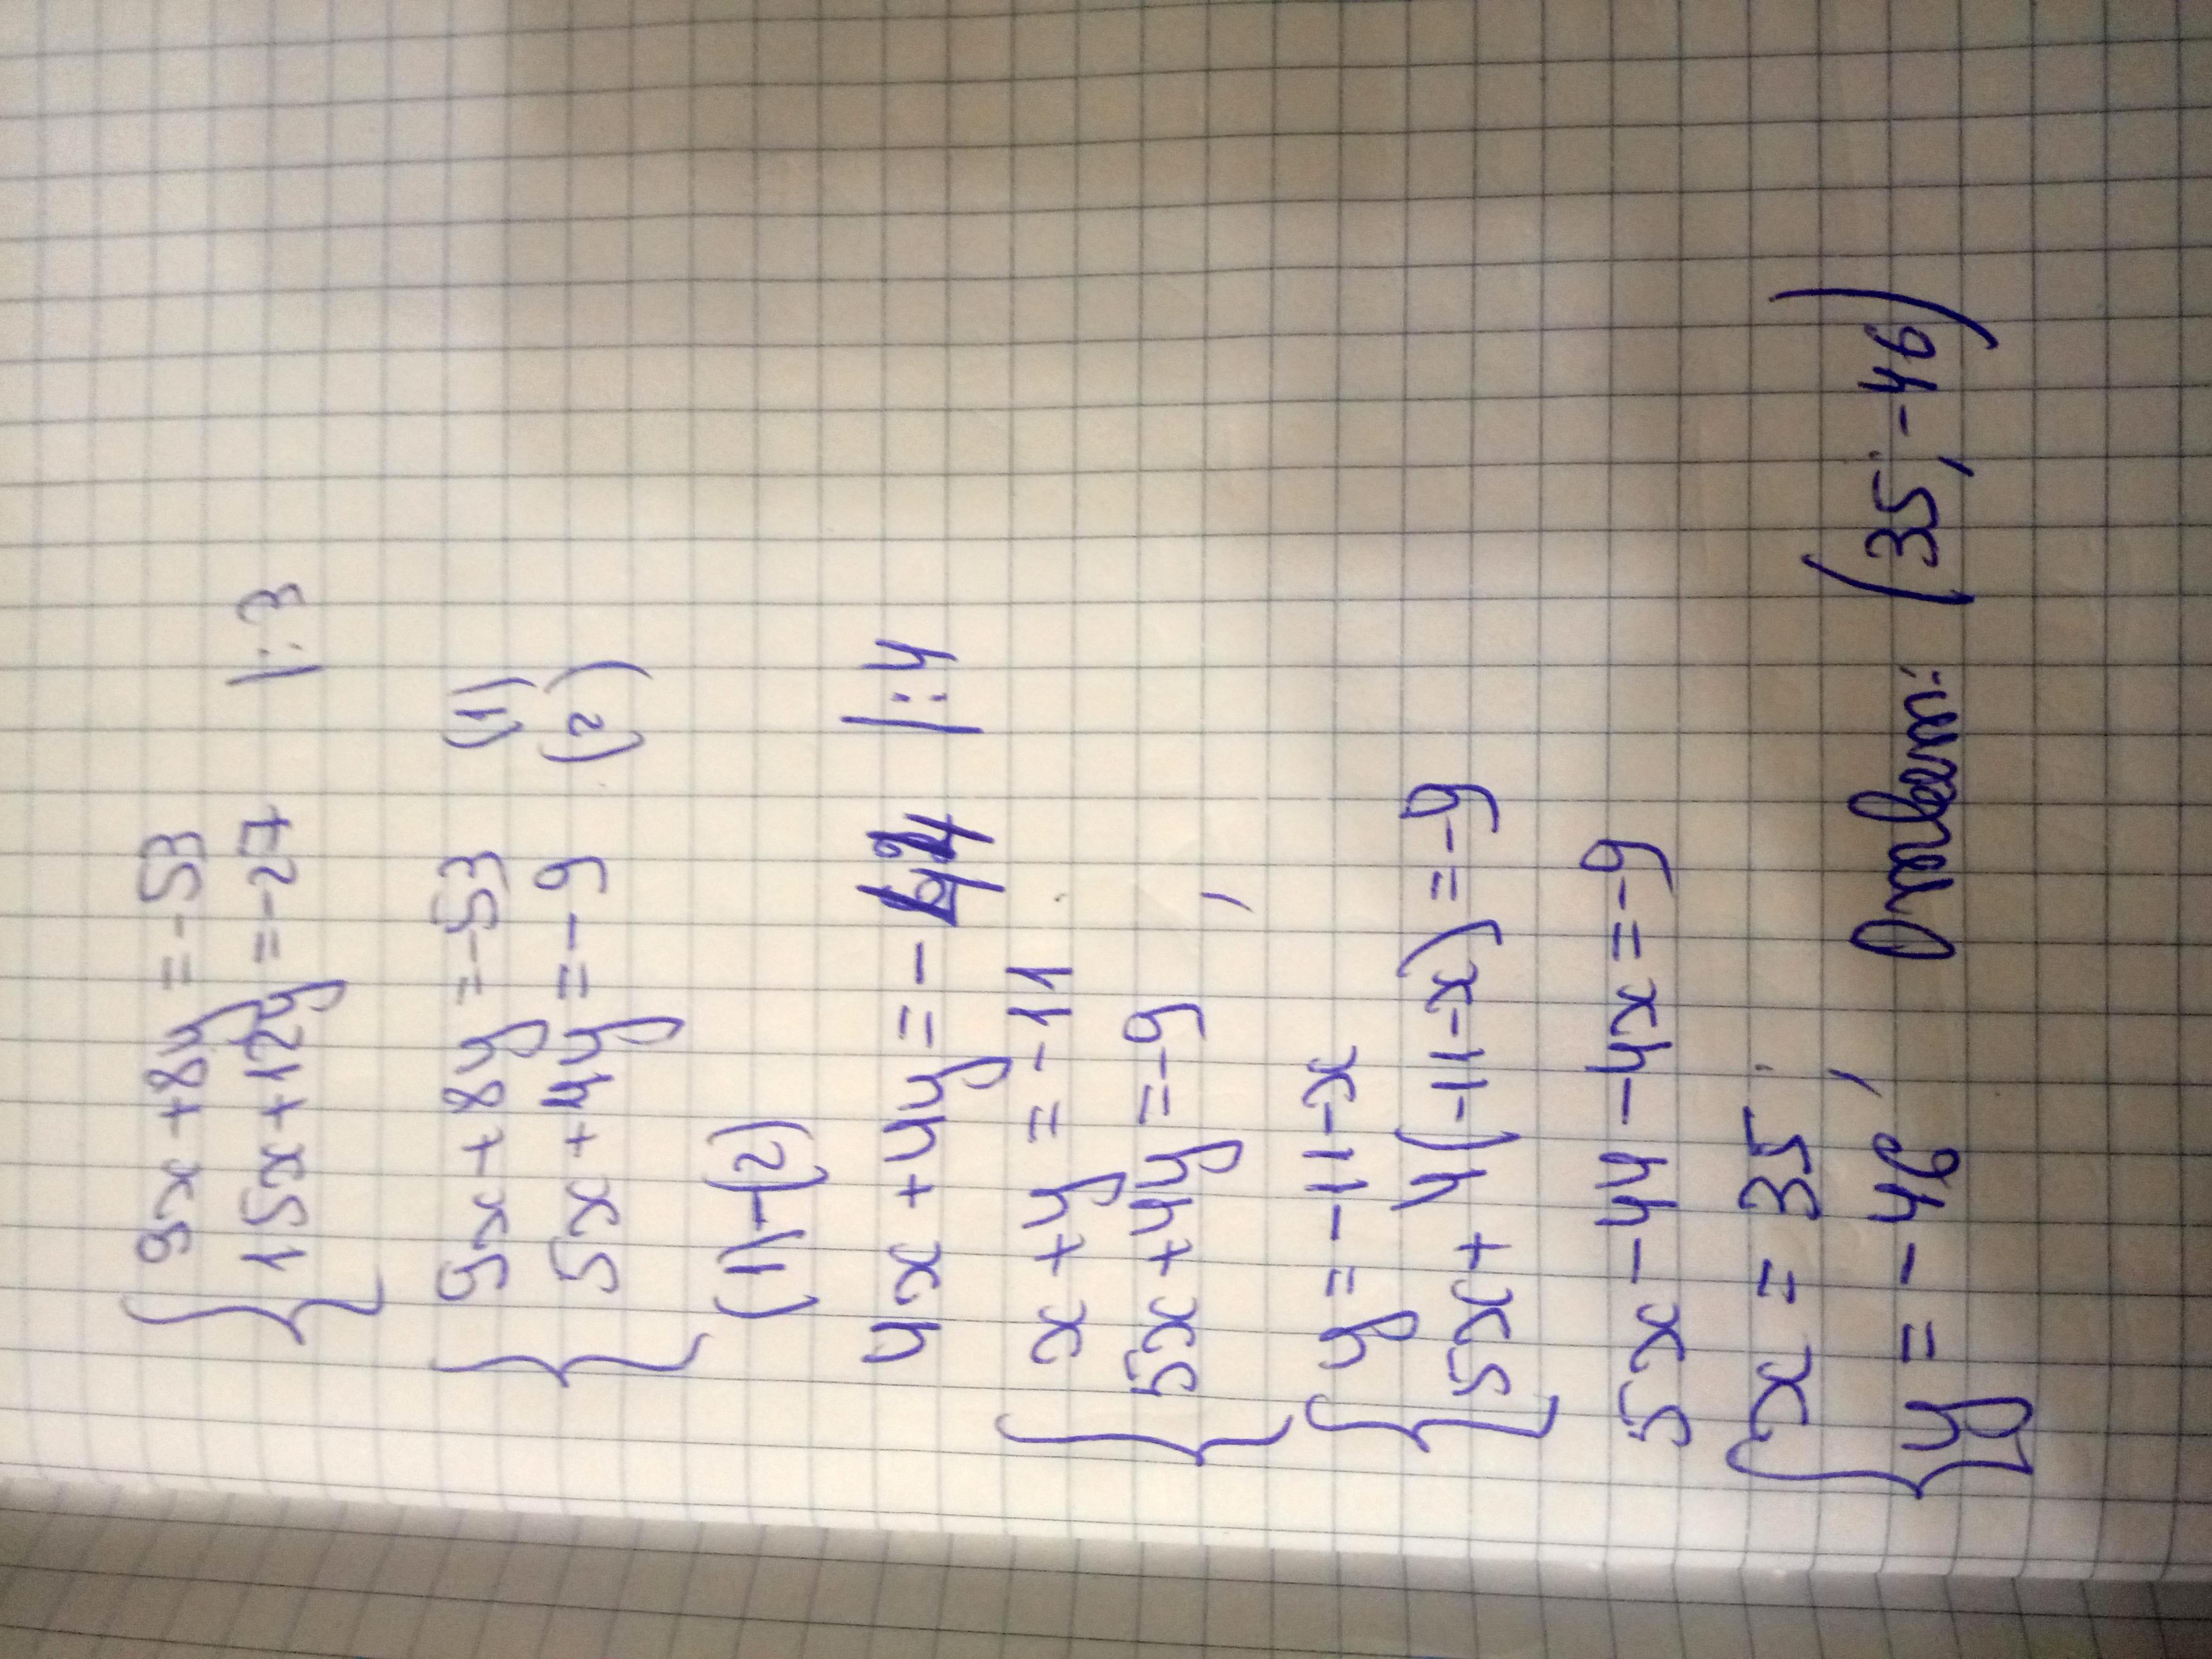 9x + 8y = -53
15x + 12y = -27 |:3
9x + 8y = -53 (1)
5x + 4y = -9 (2)
(1)-(2)
4x + 4y = -44 |:4
x + y = -11
5x + 4y = -9 ,
y = -11 - x
5x + 4(-11-x) = -9
5x - 44 - 4x = -9
x = 35 ;
y = -46 , Ответ: (35; -46)